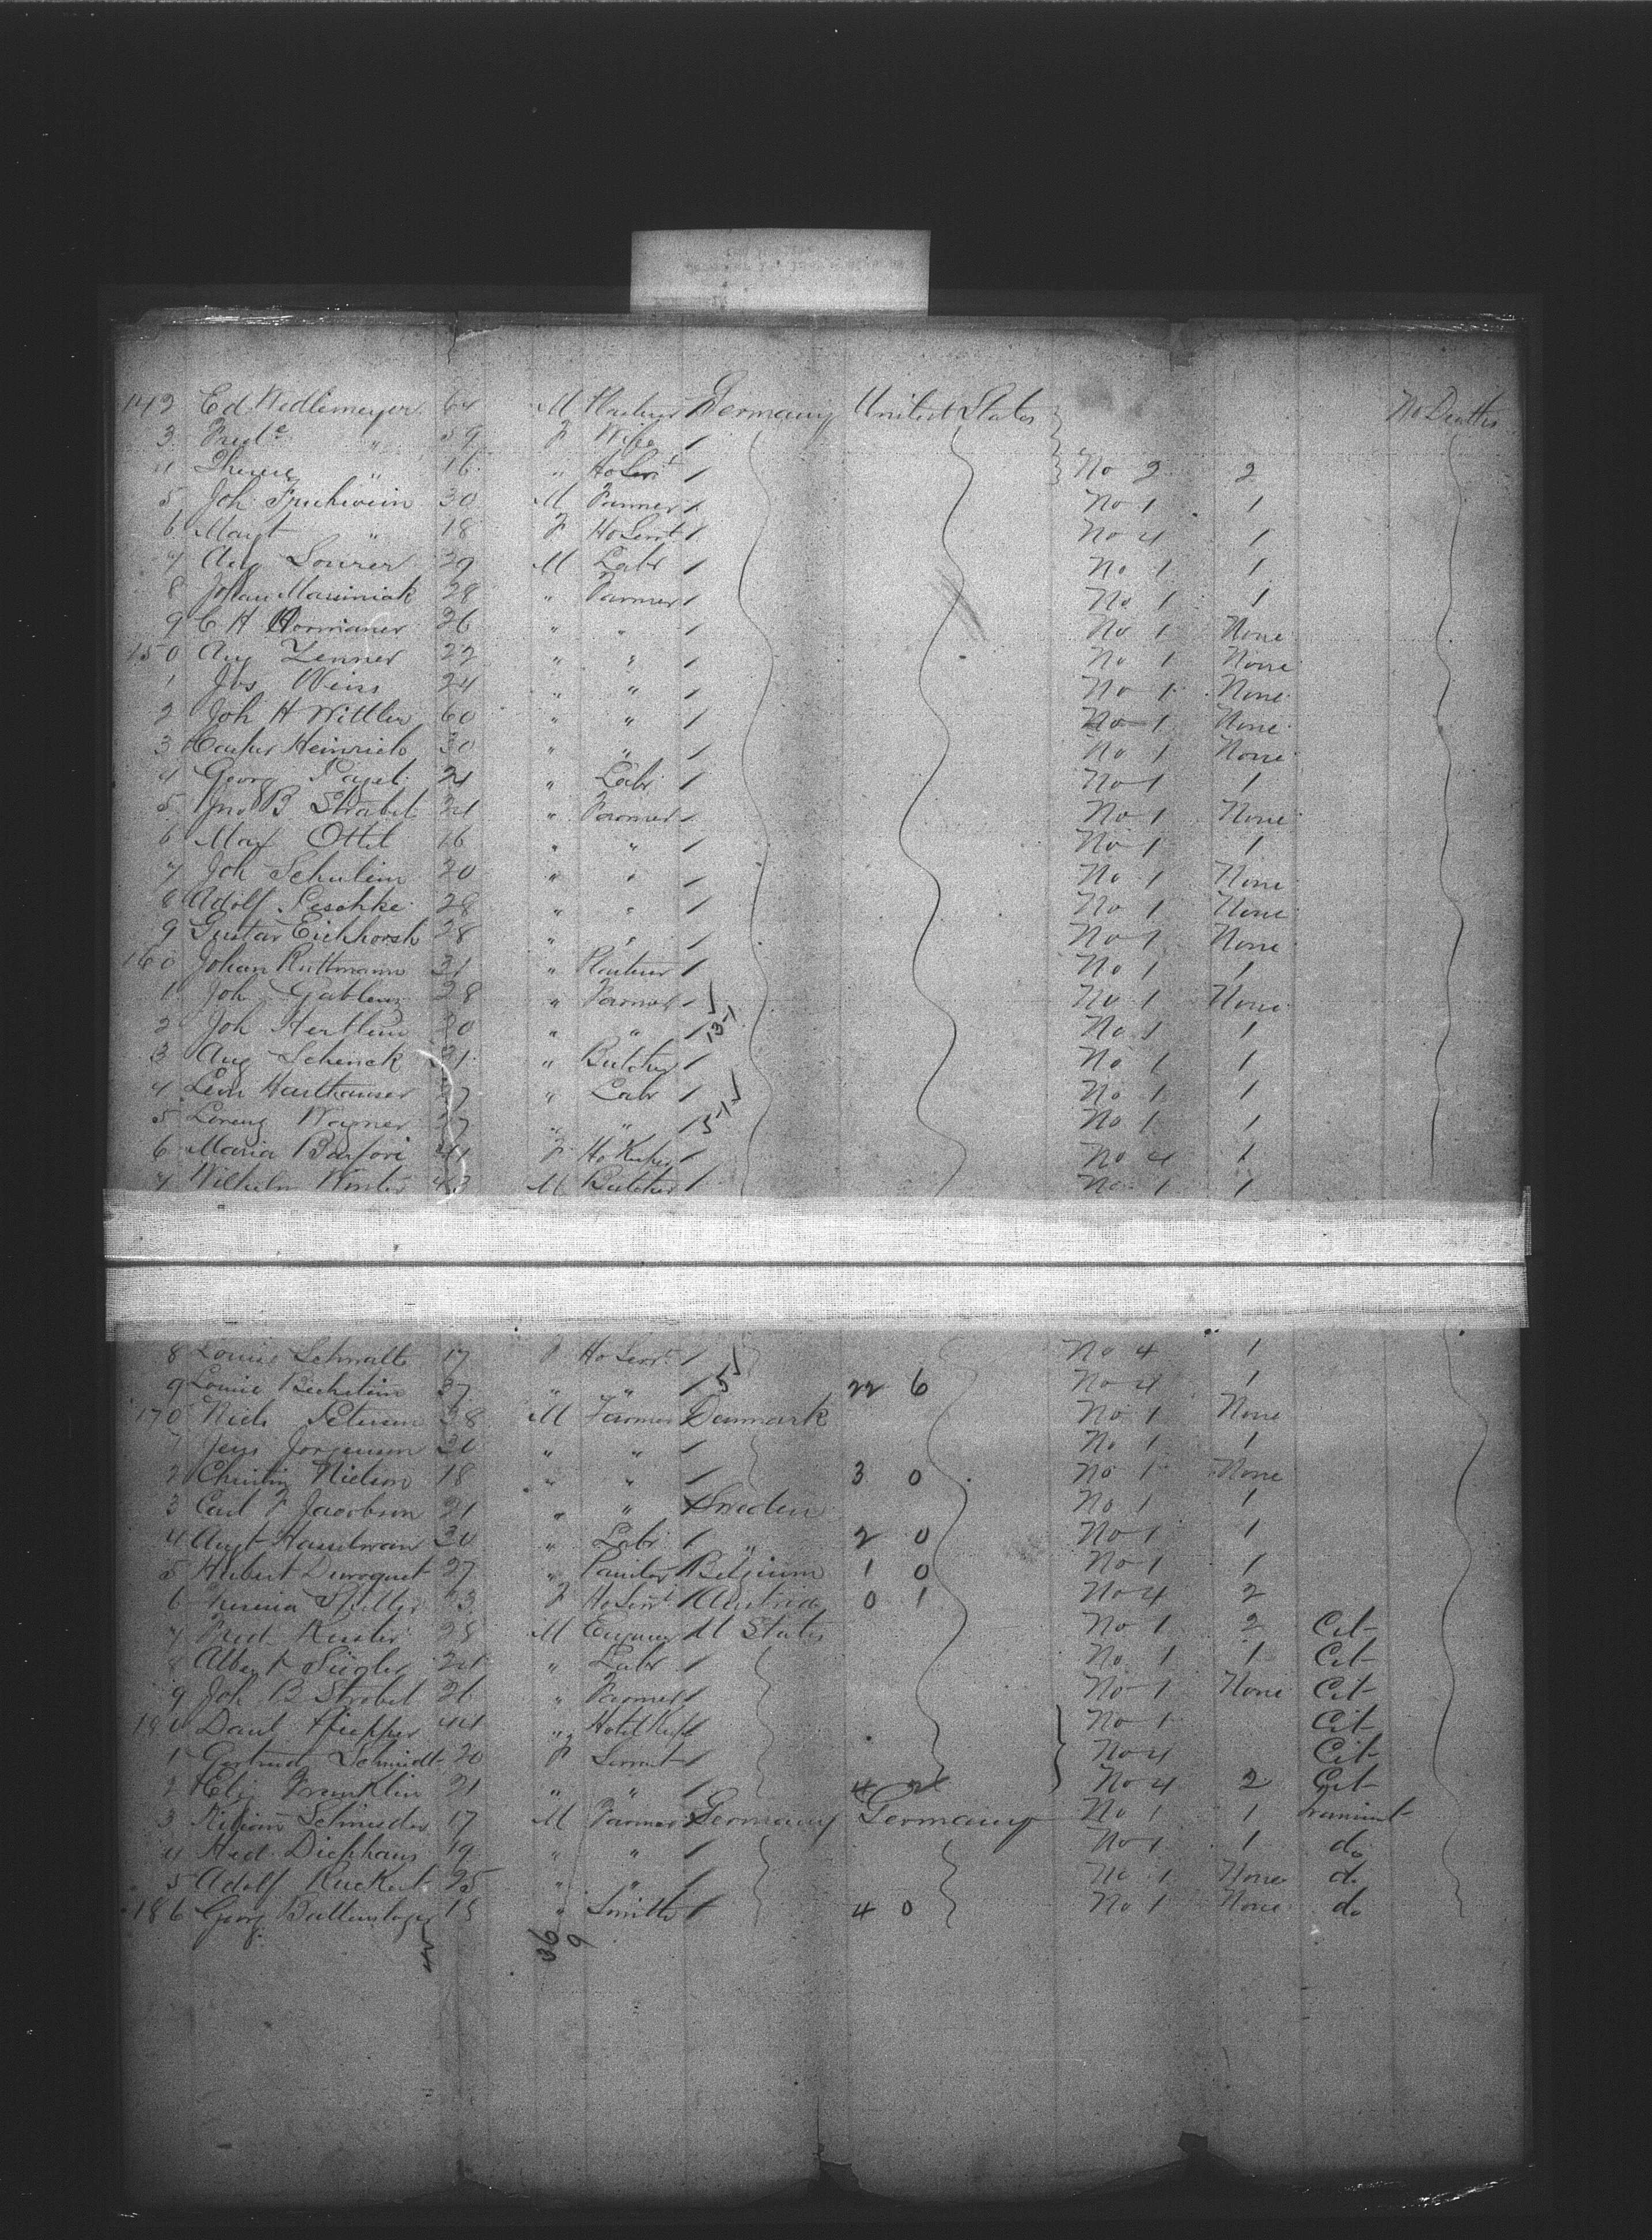 142 Ed. Wedlemeyer 64 M Planter Germany United States No Deaths
3 Fred.e " 59 F Wife /
4 " 16 " Ho Servt / No 2 2
5 Joh Fruhwein 30 M Farmer / No 1 1
6 Margt " 18 F Ho Servt / No 4 1
7 Aug 29 M Labr / No 1 1
8 Johan Masiniak 28 " Farmer / No 1 1
9 C H Hormaner 26 " " / No 1 None
150 Aug Zenner 22 " " / No 1 None
1 Jos Weiss 24 " " / No 1 None
2 Joh H Wittler 60 " " / No 1 None
3 Heinrich 30 " " / No 1 None
4 Georg 24 " Labr / No 1 1
5 Jno B Strabel " Farmer / No 1 None
6 Max Ottel 16 " " / No 1 1
7 Joh Schulein 20 " " / No 1 None
8 Adolf Peschke 28 " " / No 1 None
9 Gustav Eichhorst 28 " " / No 1 None
160 Johan Ruttmann 31 " / No 1 1
1 Joh 28 " Farmer / No 1 None
2 Joh Hertlein 20 " " / 13-1 No 1 1
3 Aug Schenck 21 " Butcher / No 1 1
4 Leon Harthauser 27 " Labr / No 1 1
5 Lorenz Wagner 27 " " / 5-1 No 1 1
6 Maria F Ho Keeper / No 4 1
7 Wilhelm Winter 43 M Butcher / No 1 1
8 Louise Schmalts 17 F Ho Servt / No 4 1
9 Louise Bechstein 27 " " / 22 6 No 4 1
170 Niels Petersen 38 M Farmer Denmark No 1 None
1 Jens Jorgensen " " / No 1 1
2 Nielson 18 " " / 3 0 No 1 None
3 Carl F Jacobson 21 " " Sweden No 1 1
4 Augt Hasselman 30 " Labr / " 2 0 No 1 1
5 Hubert 27 " Painter Belgium 1 0 No 1 1
6 23 F Ho Servt Austria 0 1 No 4 2
7 Fred 28 M U States No 1 2 Cit
8 Albert 24 " Labr / No 1 1 Cit
9 Joh B Strobel 26 " Farmer / No 1 None Cit
180 Danl 44 " Hotel Kepr / No 1 Cit
1 Gertrud Schmidt 20 F Servnt / No 4 Cit
2 Eliz Franklin 21 " " / 4 2 No 4 2 Cit
3 Kilian Schneider 17 M Farmer Germany Germany No 1 1 transient
4 Hed. Diephaus 19 " " / No 1 1 do
5 Adolf Ruckert 25 " " / No 1 None do
186 Georg 18 " Smith / 4 0 No 1 None do
36 9